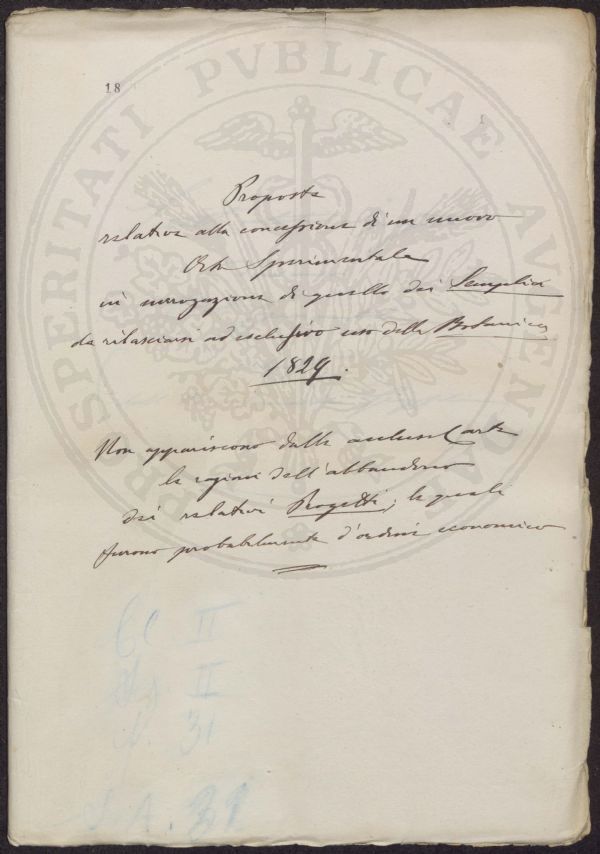 18
PROSPERITATI PVBLICAE AVGENDAE
Proposta
relativa alla concessione di un nuovo
Orto Sperimentale
in surrogazione di quello dei Semplici
da rilasciarsi ad esclusivo uso della Botanica
1829.
Non appariscono dalle accluse Carte
le ragioni dell'abbandono
dei relativi Progetti; le quali
furono probabilmente d'ordine economico
II
II
N. 31
31